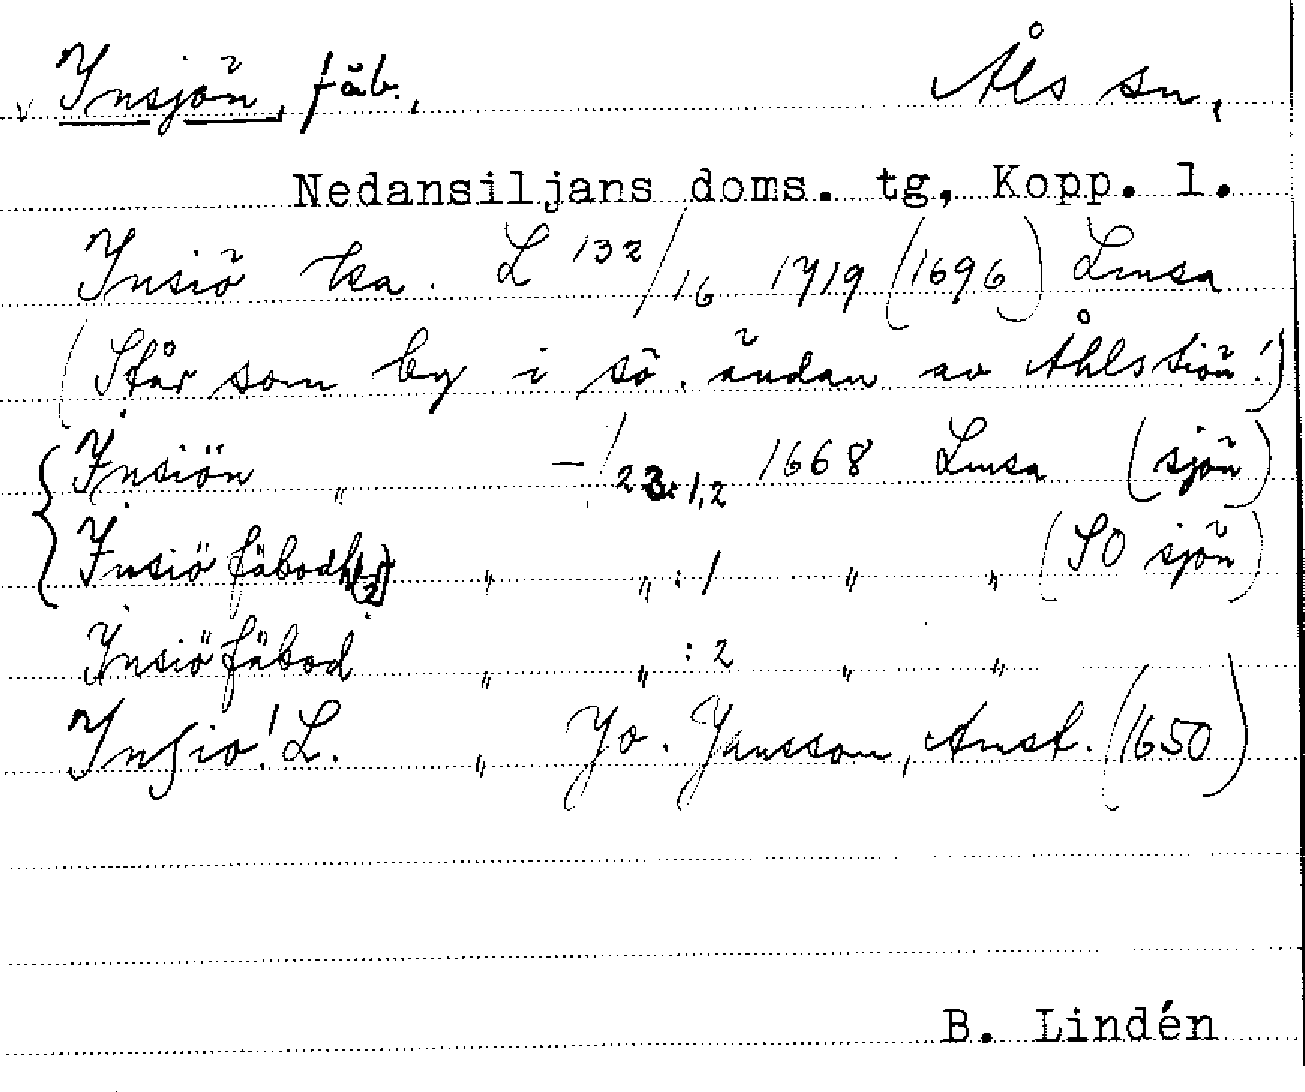 v Insjön, fäb., Åls sn,
Nedansiljans doms. tg, Kopp. l.
Insiö ka. L 132/16 1719 (1696) Lmsa
(Står som by i sö. ändan av Åhlssiön!)
Insiön " –/23:1,2 1668 Lmsa (sjön)
Insiö fäbodh " " :1 " " (SO sjön)
Insiö fäbod " " :2 " "
Insio! L. " Jo. Jansson, Amst. (1650)
B. Lindén